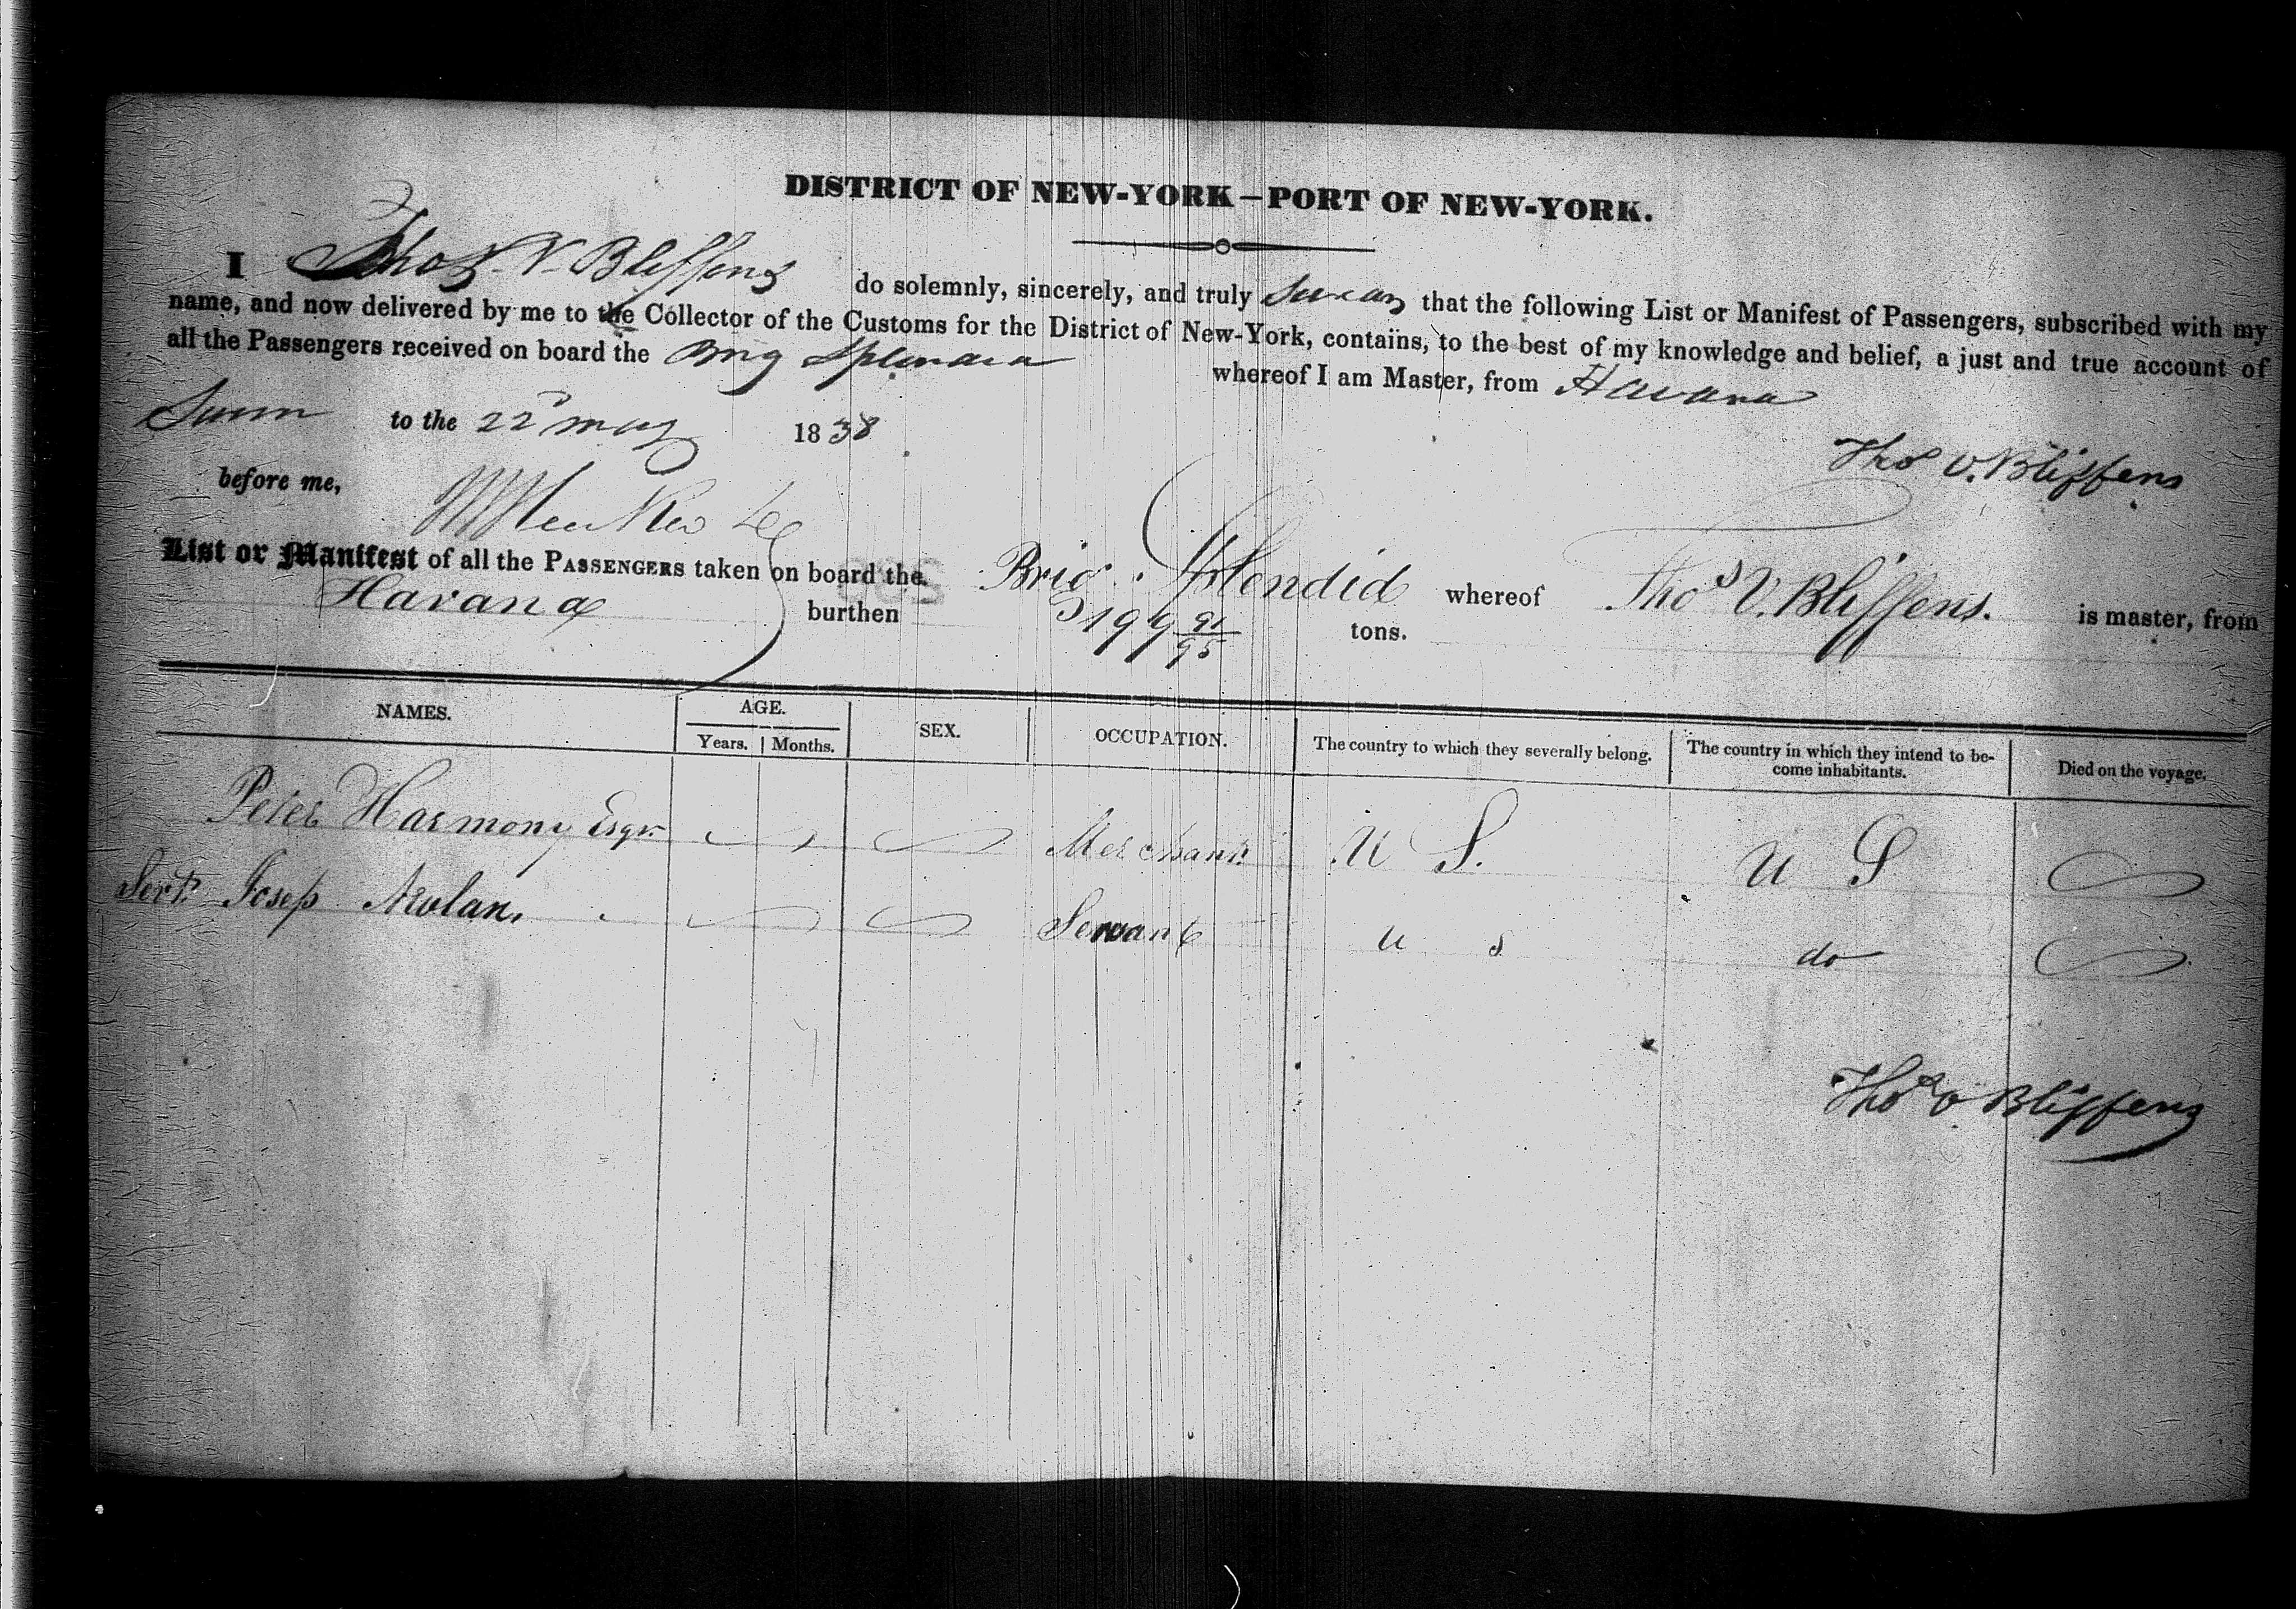 DISTRICT OF NEW-YORK—PORT OF NEW-YORK.
I Thos. V. Bliffens do solemnly, sincerely, and truly Swear that the following List or Manifest of Passengers, subscribed with my
name, and now delivered by me to the Collector of the Customs for the District of New-York, contains, to the best of my knowledge and belief, a just and true account of
all the Passengers received on board the Brig Splendid whereof I am Master, from Havana
Sworn to the 22d May 1838
Thos V. Bliffens
before me,
List or Manifest of all the PASSENGERS taken on board the Brig Splendid whereof Thos V. Bliffens. is master, from
Havana burthen 199 91/95 tons.
NAMES. AGE. SEX. OCCUPATION. The country to which they severally belong. The country in which they intend to be-
come inhabitants. Died on the voyage.
Years. Months.
Peter Harmony Esqr. Merchant U S. U S
Servt. Joseph Servant U S do
Thos V Bliffens